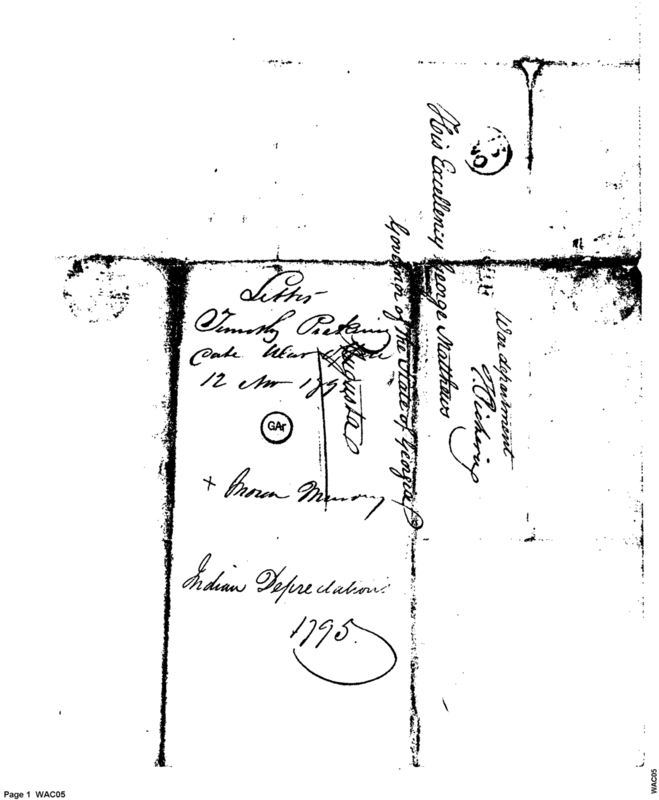 His Excellency George Matthews
Governor of the State of Georgia
Augusta
War department
T. Pickering
Letter
Timothy Pickering
Date War Office
12 Nov 179
GAr
+
Indian Depredations
1795.
Page 1 WAC05
WAC05